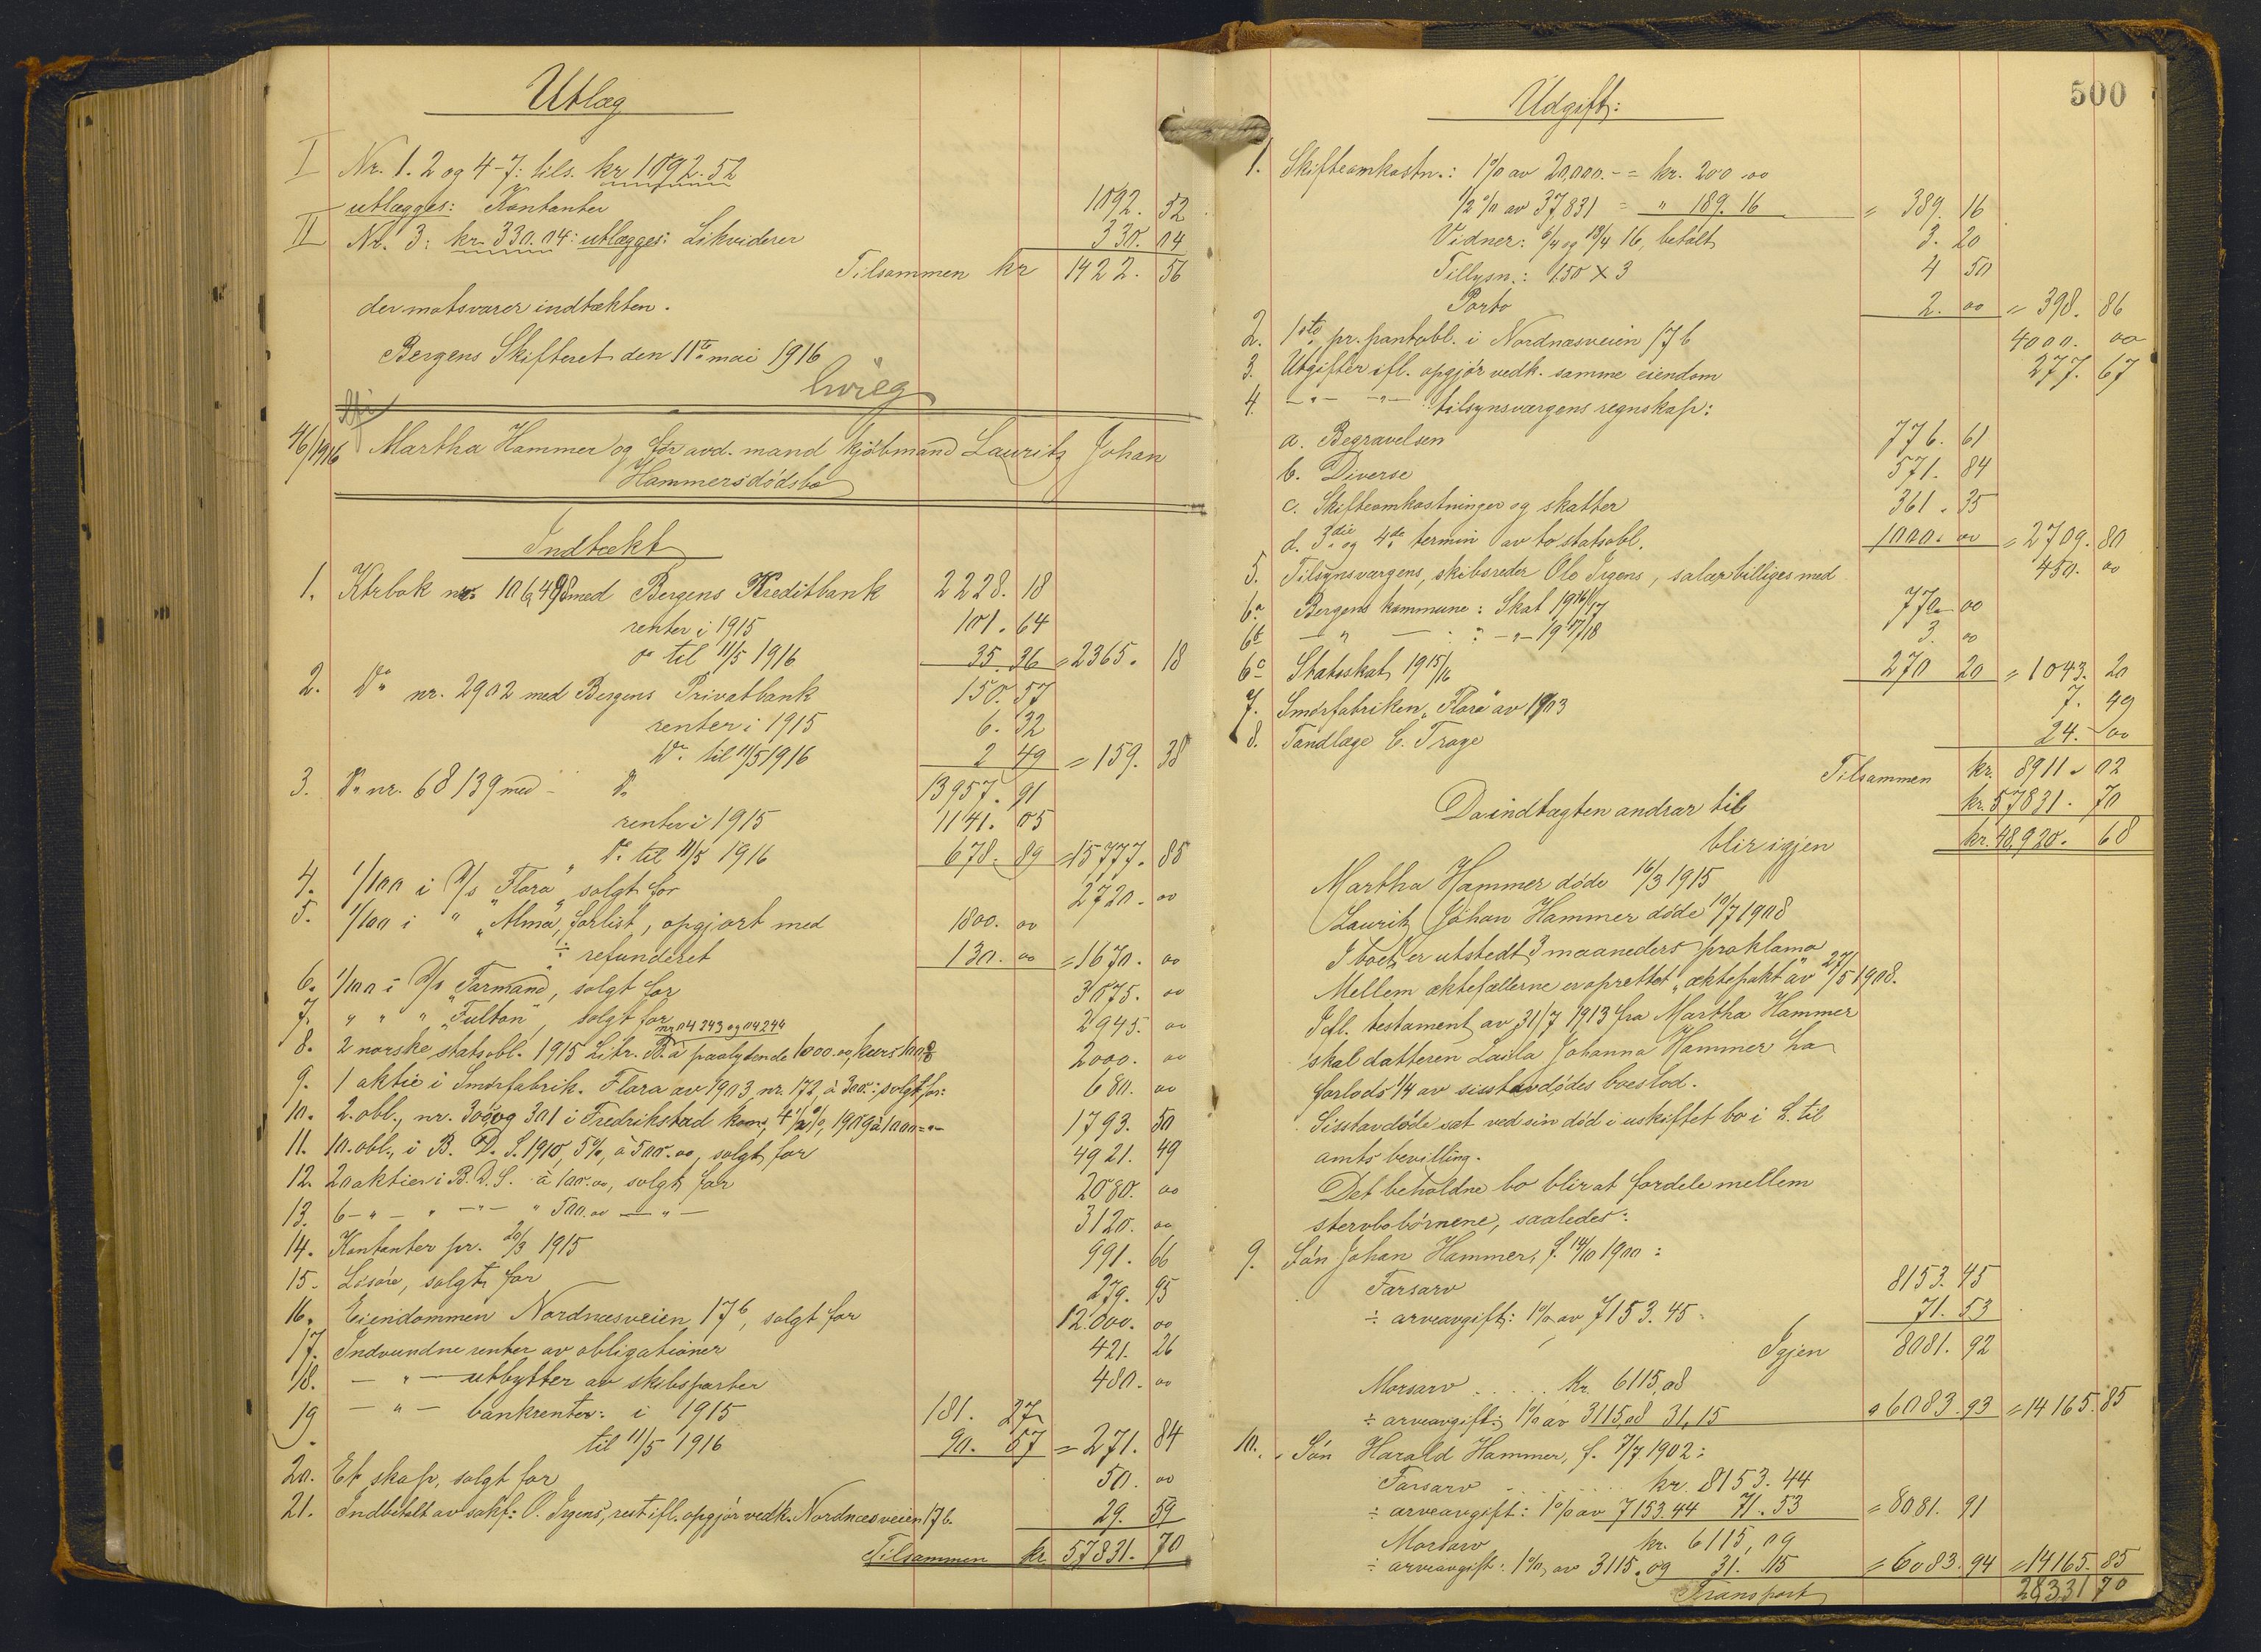 Utlæg
I Nr. 1. 2 og 4-7: tils. kr 1092.52
utlægges: Kontanter 1092. 52
II Nr. 3: kr. 330.04: utlægges: Likviderer 330. 04
Tilsammen kr 1422. 56
der motsvarer indtækten.
Bergens Skifteret den 11te mai 1916
46/1916 Martha Hammer og før avd. mand kjøbmand Lauritz Johan
Hammers dødsbo
Indtækt
1. Ktrbok nr. 106,498 med Bergens Kreditbank 2228. 18
renter i 1915 101. 64
do til 11/5 1916 35. 36 = 2365. 18
2. Do nr. 2902 med Bergens Privatbank 150. 57
renter i 1915 6. 32
Do til 11/5 1916 2 49 = 159. 38
3. Do nr. 68139 med - Do 13957. 91
renter i 1915 1141. 05
Do til 11/5 1916 678. 89 = 15777. 85
4. 1/100 i D/s "Flora", solgt for 2720. 00
5. 1/100 i " "Alma", forlist, opgjort med 1800. 00
÷ refunderet 130. 00 = 1670. 00
6. 1/100 i D/s "Farmand", solgt for 3075. 00
7. " " " "Fulton" solgt for 2945. 00
nr 04243 og 04244
8. 2 norske statsobl. 1915 Litr. B. à paalydende 1000.00, kurs 100. 2000. 00
9. 1 aktie i Smørfabrik. Flora av 1903, nr. 172, à 300.-; solgt for: 680. 00
10. 2. obl., nr. 300 og 301 i Fredrikstad kom., 4½%, 1909 à 1000 = " - 1793. 50
11. 10. obl., i B. D. S. 1910, 5%, à 500.00, solgt for 4921. 49
12. 20 aktier i B. D. S. à 100.00, solgt for 2080. 00
13. 6 - " - " - " - " 500.00 - " - 3120. 00
14. Kontanter pr. 20/3 1915 991. 66
15. Løsøre, solgt for 279. 95
16. Eiendommen Nordnæsveien 17b, solgt for 12.000. 00
17. Indvundne renter av obligationer 421. 26
18. - " - utbytter av skibsparter 480. 00
19 - " - bankrenter: i 1915 181. 27
til 11/5 1916 90. 57 = 271. 84
20. Et skap, solgt for 50. 00
21. Indbetalt av sakf: O. Irgens, rest ifl. opgjør vedk. Nordnæsveien 17b. 29. 59
Tilsammen kr. 57831. 70
500
Udgift:
1. Skifteomkostn.: 1% av 20,000.- = kr. 200.00
1/2% av 37,831 = " 189.16 = 389. 16
Vidner: 6/4 og 18/4 16, betalt 3. 20
Tillysn.: 1.50 x 3 4 50
Porto 2. 00 = 398. 86
2. 1ste pr. pantobl. i Nordnæsveien 17b 4000. 00
3. Utgifter ifl. opgjør vedk. samme eiendom 277. 67
4. - " - - " - tilsynsværgens regnskap:
a. Begravelsen 776. 61
b. Diverse 571. 84
c. Skifteomkostninger og skatter 361. 35
d. 3die og 4de termin av to statsobl. 1000. 00 = 2709. 80
5. Tilsynsværgens, skibsreder Ole Irgens, salær billiges med 450. 00
6a Bergens kommune: Skat 1916/17 770 00
6b - " - : - " - 1917/18 3. 00
6c Statsskat 1915/16 270 20 = 1043. 20
7. Smørfabriken "Flora" av 1903 7. 49
8. Tandlæge C. Trage 24. 00
Tilsammen kr. 8911. 02
Da indtægten andrar til kr. 57831. 70
blir igjen kr. 48,920. 68
Martha Hammer døde 16/3 1915
Lauritz Johan Hammer døde 10/7 1908
I boet er utstedt 3 maaneders proklama
Mellem ektefællerne er oprettet "ektepakt" av 27/5 1908.
Ifl. testament av 31/7 1913 fra Martha Hammer
skal datteren Laila Johanna Hammer ha
forlods 1/4 av sisstavdødes boeslod.
Sisstavdøde sat ved sin død i uskiftet bo i h. til
amts bevilling.
Det beholdne bo blir at fordele mellem
stervbobørnene, saaledes:
9. Søn Johan Hammer, f. 14/10 1900:
Farsarv 8153. 45
÷ arveavgift: 1% av 7153.45 71. 53
Igjen 8081. 92
Morsarv . . . . . kr. 6115,08
÷ arveavgift: 1% av 3115,08 31,15 " 6083. 93 = 14165. 85
10. Søn Harald Hammer, f. 7/7 1902:
Farsarv . . . . . . kr. 8153.44
÷ arveavgift: 1% av 7153.44 71.53 = 8081. 91
Morsarv kr. 6115,09
÷ arveavgift: 1% av 3115.09 31.15 = 6083. 94 = 14165. 85
Transport 28331 70